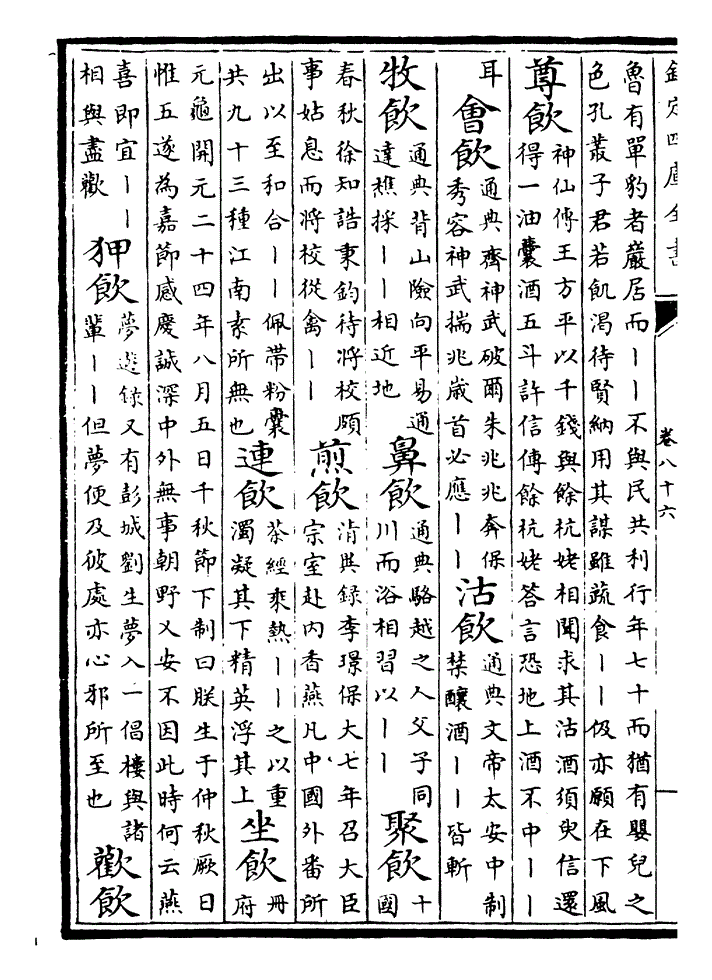 欽定四庫全書
卷八十六
魯有單豹者巖居而丨丨不與民共利行年七十而猶有嬰兒之
色孔叢子君若飢渴待賢納用其謀雖蔬食丨丨伋亦願在下風
尊飲
神仙傳王方平以千錢與餘杭姥相聞求其沽酒須臾信還
得一油囊酒五斗許信傳餘杭姥答言恐地上酒不中丨丨
耳
會飲
通典齊神武破爾朱兆兆奔保
秀容神武揣兆歲首必應丨丨
沽飲
通典文帝太安中制
禁釀酒丨丨皆斬
牧飲
通典背山險向平易通
達樵採丨丨相近地
鼻飲
通典駱越之人父子同
川而浴相習以丨丨
聚飲
十
國
春秋徐知誥秉鈞待將校頗
事姑息而將校從禽丨丨
煎飲
清異録李璟保大七年召大臣
宗室赴内香燕凡中國外番所
出以至和合丨丨佩帶粉囊
共九十三種江南素所無也
連飲
茶經乘熱丨丨之以重
濁凝其下精英浮其上
坐飲
冊
府
元龜開元二十四年八月五日千秋節下制曰朕生于仲秋厥日
惟五遂為嘉節感慶誠深中外無事朝野乂安不因此時何云燕
喜即宜丨丨
相與盡歡
狎飲
夢遊録又有彭城劉生夢入一倡樓與諸
輩丨丨但夢便及彼處亦心邪所至也
歡飲